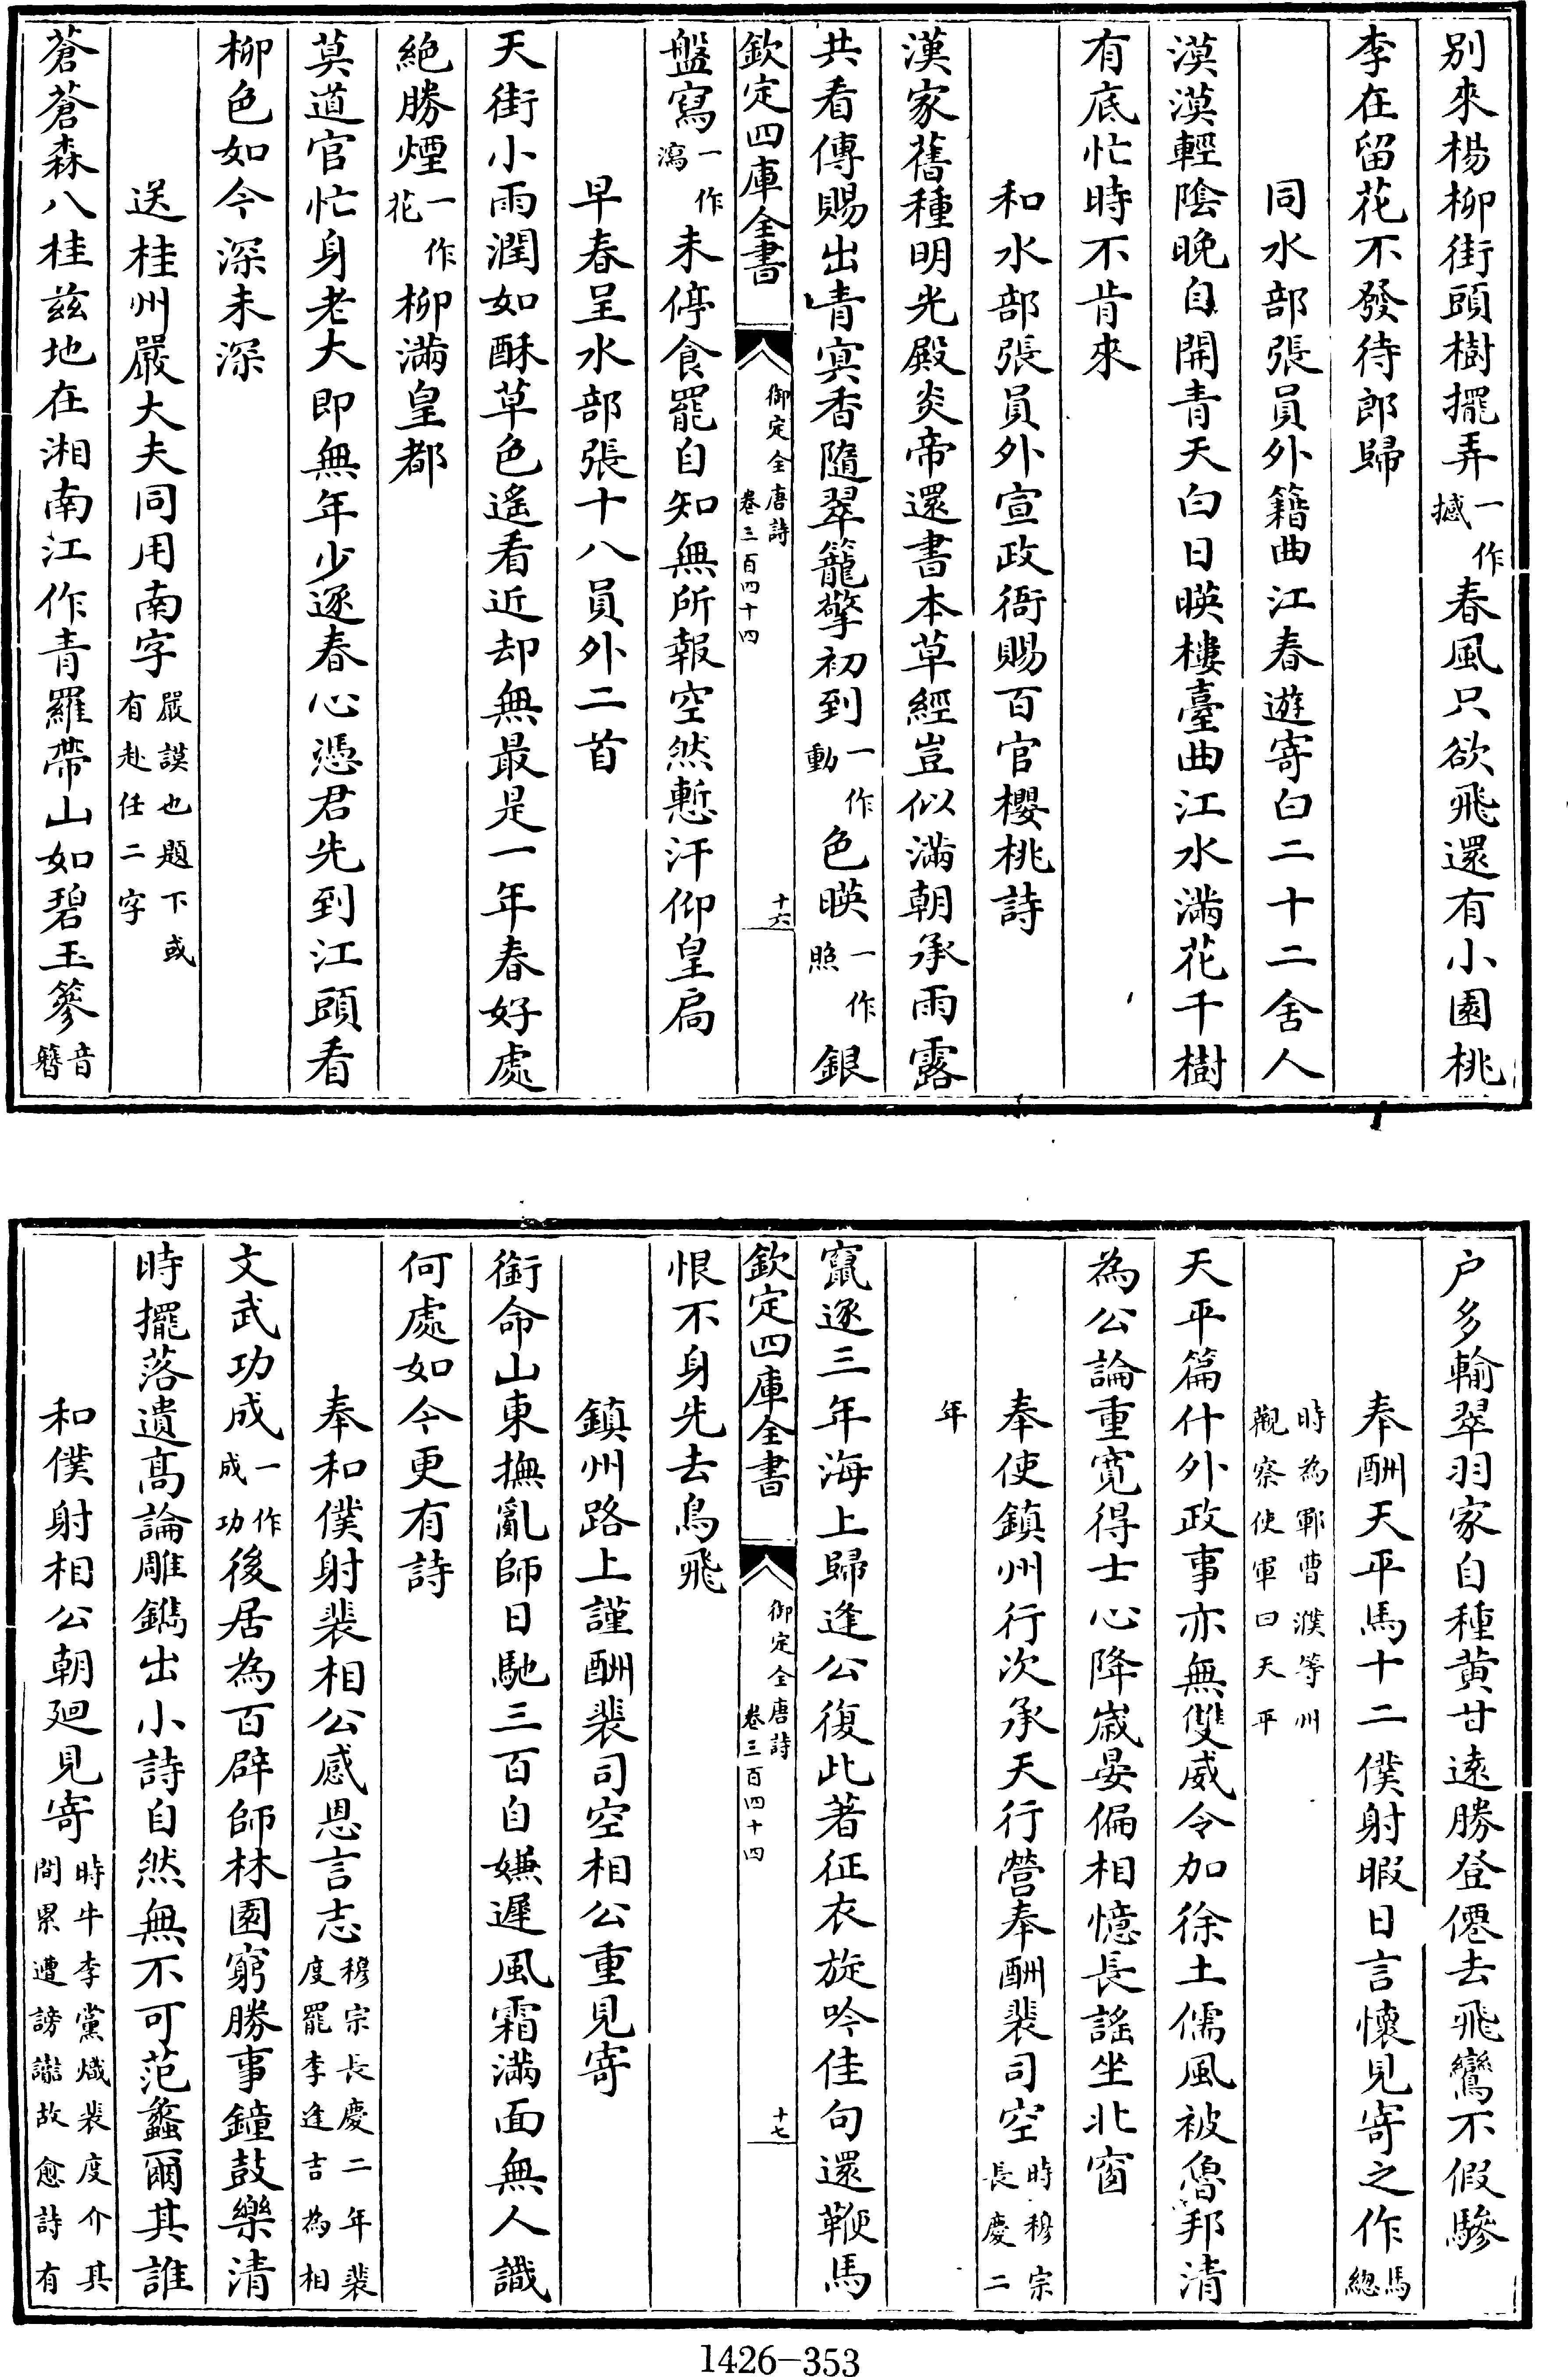 别來楊柳街頭樹擺弄一作撼春風只欲飛還有小園桃
李在留花不發待郎歸
同水部張員外籍曲江春遊寄白二十二舍人
漠漠輕陰晚自開青天白日暎樓臺曲江水滿花千樹
有底忙時不肯來
和水部張員外宣政衙賜百官櫻桃詩
漢家舊種明光殿炎帝還書本草經豈似滿朝承雨露
共看傳賜出青冥香隨翠籠擎初到一作動色暎一作照銀
欽定四庫全書 御定全唐詩卷三百四十四 十六
盤寫一作瀉未停食罷自知無所報空然慙汗仰皇扃
早春呈水部張十八員外二首
天街小雨潤如酥草色遙看近却無最是一年春好處
絕勝煙一作花柳滿皇都
莫道官忙身老大即無年少逐春心憑君先到江頭看
柳色如今深未深
送桂州嚴大夫同用南字嚴謨也題下或有赴任二字
蒼蒼森八桂茲地在湘南江作青羅帶山如碧玉篸音簪
户多輸翠羽家自種黄甘遠勝登僊去飛鸞不假驂
奉酬天平馬十二僕射暇日言懷見寄之作馬總
時為鄆曹濮等州觀察使軍曰天平
天平篇什外政事亦無雙威令加徐土儒風被魯邦清
為公論重寬得士心降嵗晏偏相憶長謡坐北窗
奉使鎮州行次承天行營奉酬裴司空時穆宗長慶二
年
竄逐三年海上歸逢公復此著征衣旋吟佳句還鞭馬
欽定四庫全書 御定全唐詩卷三百四十四 十七
恨不身先去鳥飛
鎮州路上謹酬裴司空相公重見寄
銜命山東撫亂師日馳三百自嫌遲風霜滿面無人識
何處如今更有詩
奉和僕射裴相公感恩言志穆宗長慶二年裴度罷李逢吉為相
文武功成一作成功後居為百辟師林園窮勝事鐘鼓樂清
時擺落遺高論雕鐫出小詩自然無不可范蠡爾其誰
和僕射相公朝廻見寄時牛李黨熾裴度介其間累遭謗讟故愈詩有
1426-353